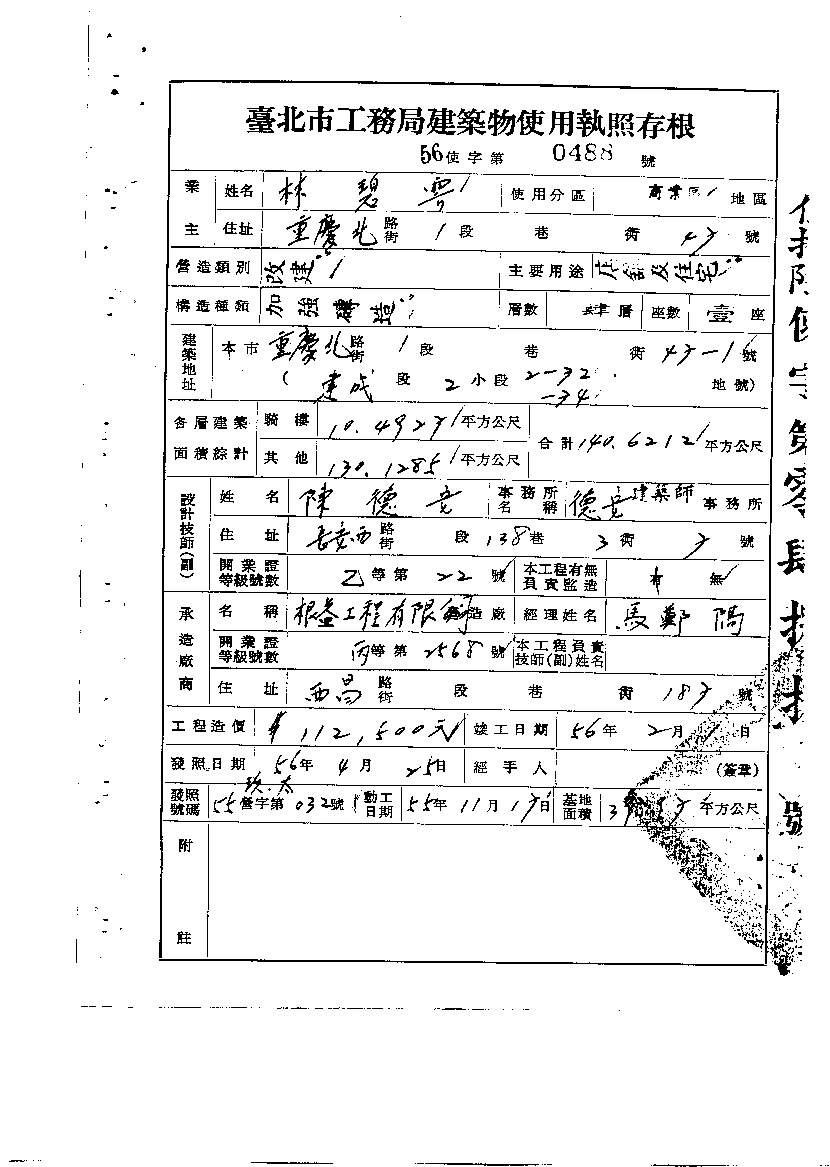 臺北市工務局建築物使用執照存根
56使字第 0488 號
業主 姓名 林碧雲 使用分區 商業區 地區
住址 重慶北路街 1段 巷 衖 47號
營造類別 改建 主要用途 店舖及住宅
構造種類 加強磚造 層數 肆層 座數 壹座
建築地址 本市重慶北路街 1段 巷 衖 47-1號
(建成段 2小段 2-32 地號)
-34
各層建築面積綜計 騎樓 10.4927平方公尺 合計140.6212平方公尺
其他 130.1285平方公尺
設計技師(副) 姓名 陳德 事務所名稱 德 建築師事務所
住址 長安西路街 段 138巷 3衖 7號
開業證等級號數 乙等第22號 本工程有無負責監造 有 無
承造廠商 名稱 根益工程有限 造廠 經理姓名 馬鄭
開業證等級號數 丙等第2568號 本工程負責技師(副)姓名
住址 西昌路街 段 巷 衖 187號
工程造價 $112,500元 竣工日期 56年2月 日
發照日期 56年4月25日 經手人 (簽章)
發照號碼 55營字第032號 動工日期 55年11月17日 基地面積 平方公尺
附註